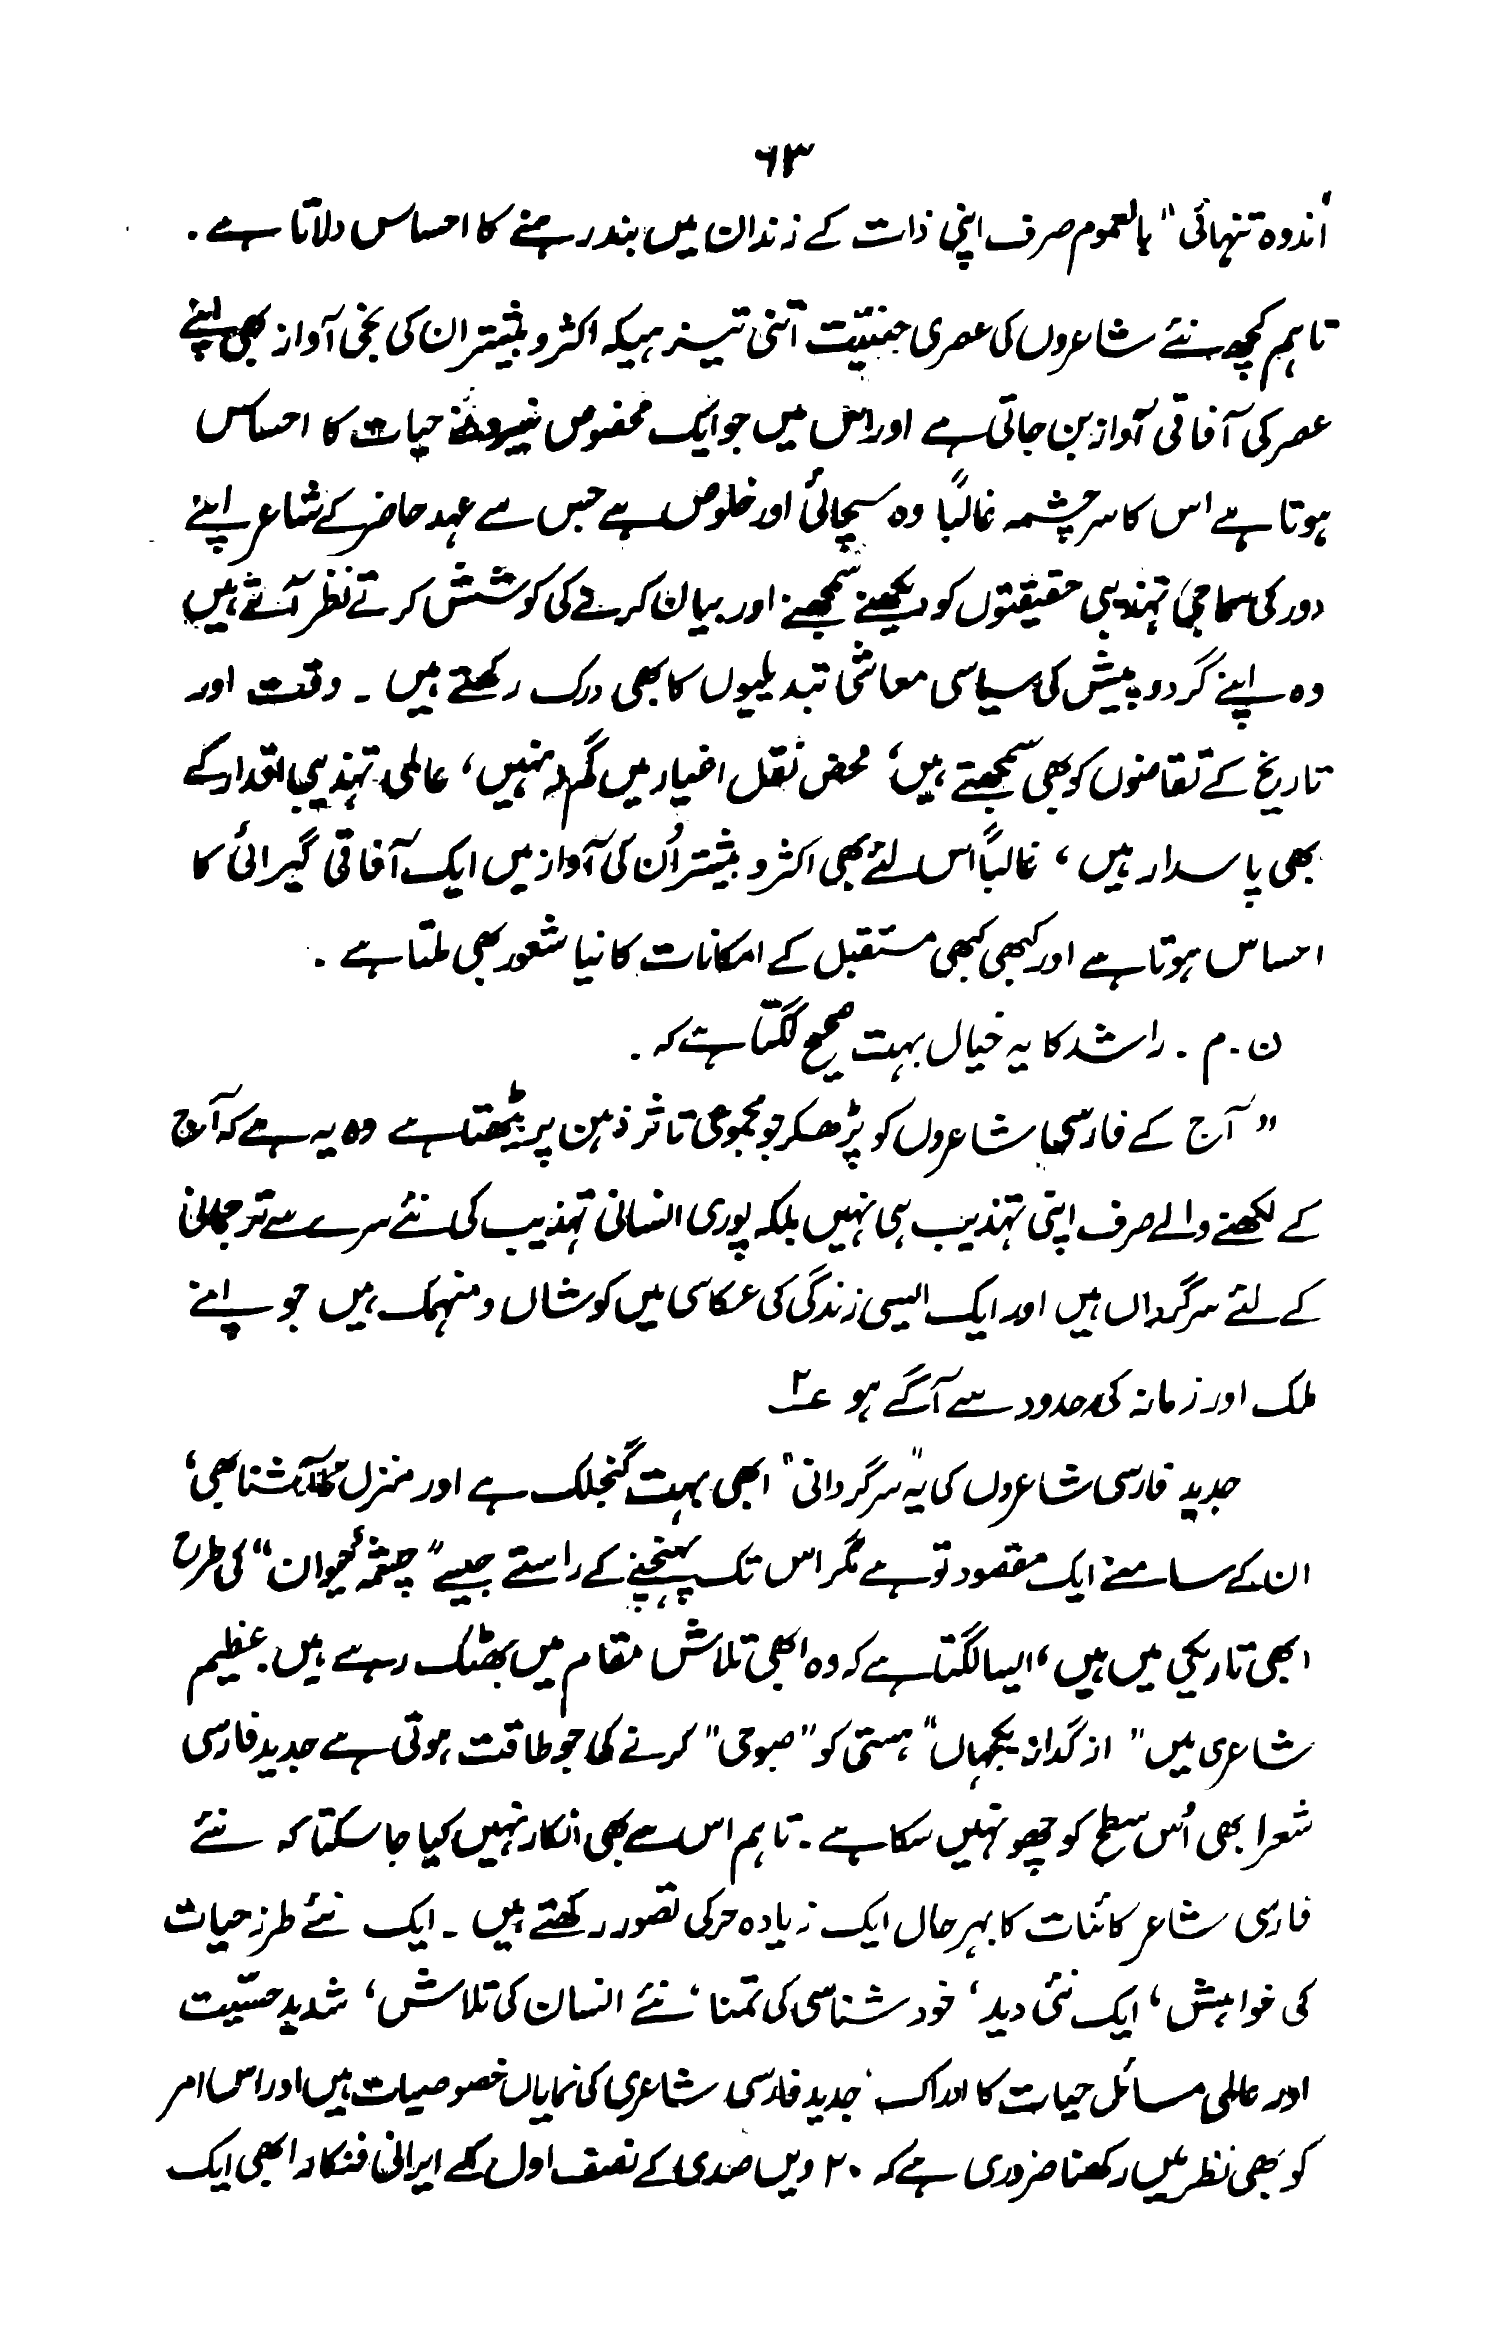 ۶۳
اندوہ تنہائی" بالعموم صرف اپنی ذات کے زندان میں بند رہنے کا احساس دلاتا ہے۔
تاہم کچھ نئے شاعروں کی عصری حسّیّت اتنی تیز ہیکہ اکثر و بیشتر ان کی نجی آواز بھی اپنے
عصر کی آفاقی آواز بن جاتی ہے اور اس میں جو ایک مخصوص نیروئے حیات کا احساس
ہوتا ہے اس کا سرچشمہ غالباً وہ سچائی اور خلوص ہے جس سے عہد حاضر کے شاعر اپنے
دور کی سماجی تہذیبی حقیقتوں کو دیکھنے سمجھنے اور بیان کرنے کی کوشش کرتے نظر آتے ہیں
وہ اپنے گرد و پیش کی سیاسی معاشی تبدیلیوں کا بھی درک رکھتے ہیں ۔ وقت اور
تاریخ کے تقاضوں کو بھی سمجھتے ہیں، محض نقل اغیار میں گم نہیں، عالمی تہذیبی اقدار کے
بھی پاسدار ہیں، غالباً اس لئے بھی اکثر و بیشتر اُن کی آواز میں ایک آفاقی گیرائی کا
احساس ہوتا ہے اور کبھی کبھی مستقبل کے امکانات کا نیا شعور بھی ملتا ہے ۔
ن ۔ م ۔ راشد کا یہ خیال بہت صحیح لگتا ہے کہ ۔
"آج کے فارسی شاعروں کو پڑھکر جو مجموعی تاثر ذہن پر بیٹھتا ہے وہ یہ ہے کہ آج
کے لکھنے والے صرف اپنی تہذیب ہی نہیں بلکہ پوری انسانی تہذیب کی نئے سرے سے ترجمانی
کے لئے سرگرداں ہیں اور ایک ایسی زندگی کی عکاسی میں کوشاں و منہمک ہیں جو اپنے
ملک اور زمانہ کی حدود سے آگے ہو ؏۲
جدید فارسی شاعروں کی یہ "سرگردانی" ابھی بہت گنجلک ہے اور منزل ناآشنا بھی،
ان کے سامنے ایک مقصود تو ہے مگر اس تک پہنچنے کے راستے جیسے "چشمۂ حیوان" کی طرح
ابھی تاریکی میں ہیں، ایسا لگتا ہے کہ وہ ابھی تلاش مقام میں بھٹک رہے ہیں۔ عظیم
شاعری میں "از گداز یکجہاں" ہستی کو "صبوحی" کرنے کی جو طاقت ہوتی ہے جدید فارسی
شعرا بھی اُس سطح کو چھو نہیں سکا ہے ۔ تاہم اس سے بھی انکار نہیں کیا جا سکتا کہ نئے
فارسی شاعر کائنات کا بہر حال ایک زیادہ حرکی تصور رکھتے ہیں ۔ ایک نئے طرز حیات
کی خواہش، ایک نئی دید، خود شناسی کی تمنا، نئے انسان کی تلاش، شدید حسّیت
اور عالمی مسائل حیات کا ادراک جدید فارسی شاعری کی نمایاں خصوصیات ہیں اور اس امر
کو بھی نظر میں رکھنا ضروری ہے کہ ۲۰ ویں صدی کے نصف اول کے ایرانی فنکار ابھی ایک